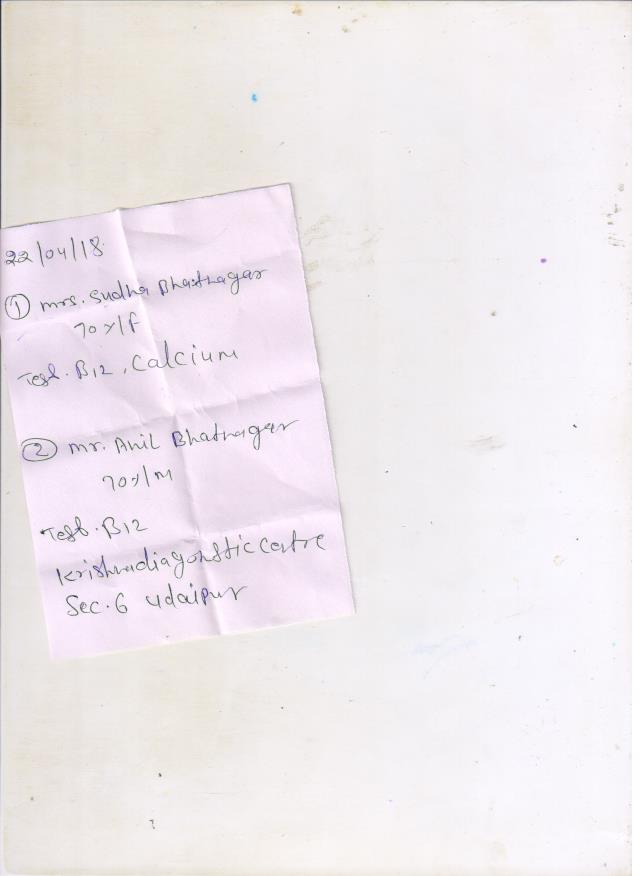 22/04/18
① mrs. Sudha Bhatnagar
70 y/F
Test. B12, Calcium
② mr. Anil Bhatnagar
70 y/M
Test. B12
Krishnadiagonstic centre
Sec. 6 Udaipur